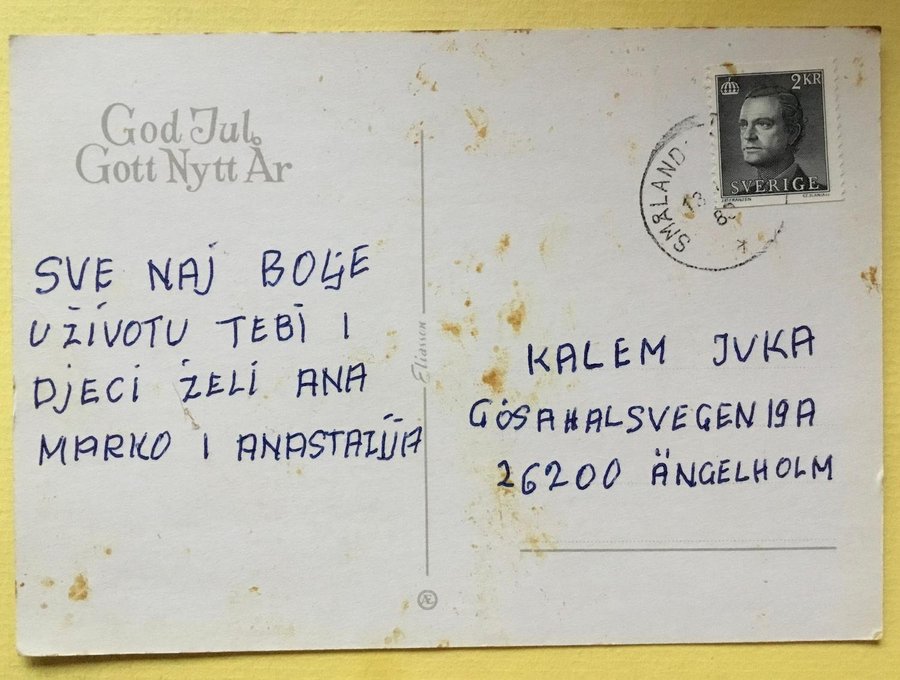 God Jul
Gott Nytt År
SVE NAJ BOLJE
U ŽIVOTU TEBI I
DJECI ŽELI ANA
MARKO I ANASTAZIJA
Eliassen
Æ
2 KR
SVERIGE
SMÅLAND
13
KALEM IVKA
GÖSAHALSVEGEN 19A
26200 ÄNGELHOLM